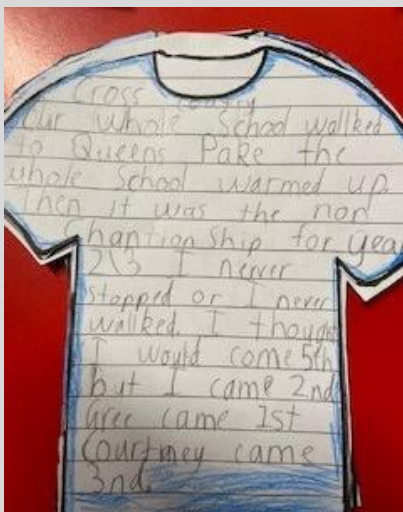 Cross country
Our Whole School wallked
to Queens Pake the
whole School warmed up.
Then it was the non
Chantion Ship for year
2\3 I nerver
stopped or I never
wallked. I thought
I would come 5th
but I came 2nd
Gree came 1st
Courtney came
3nd.